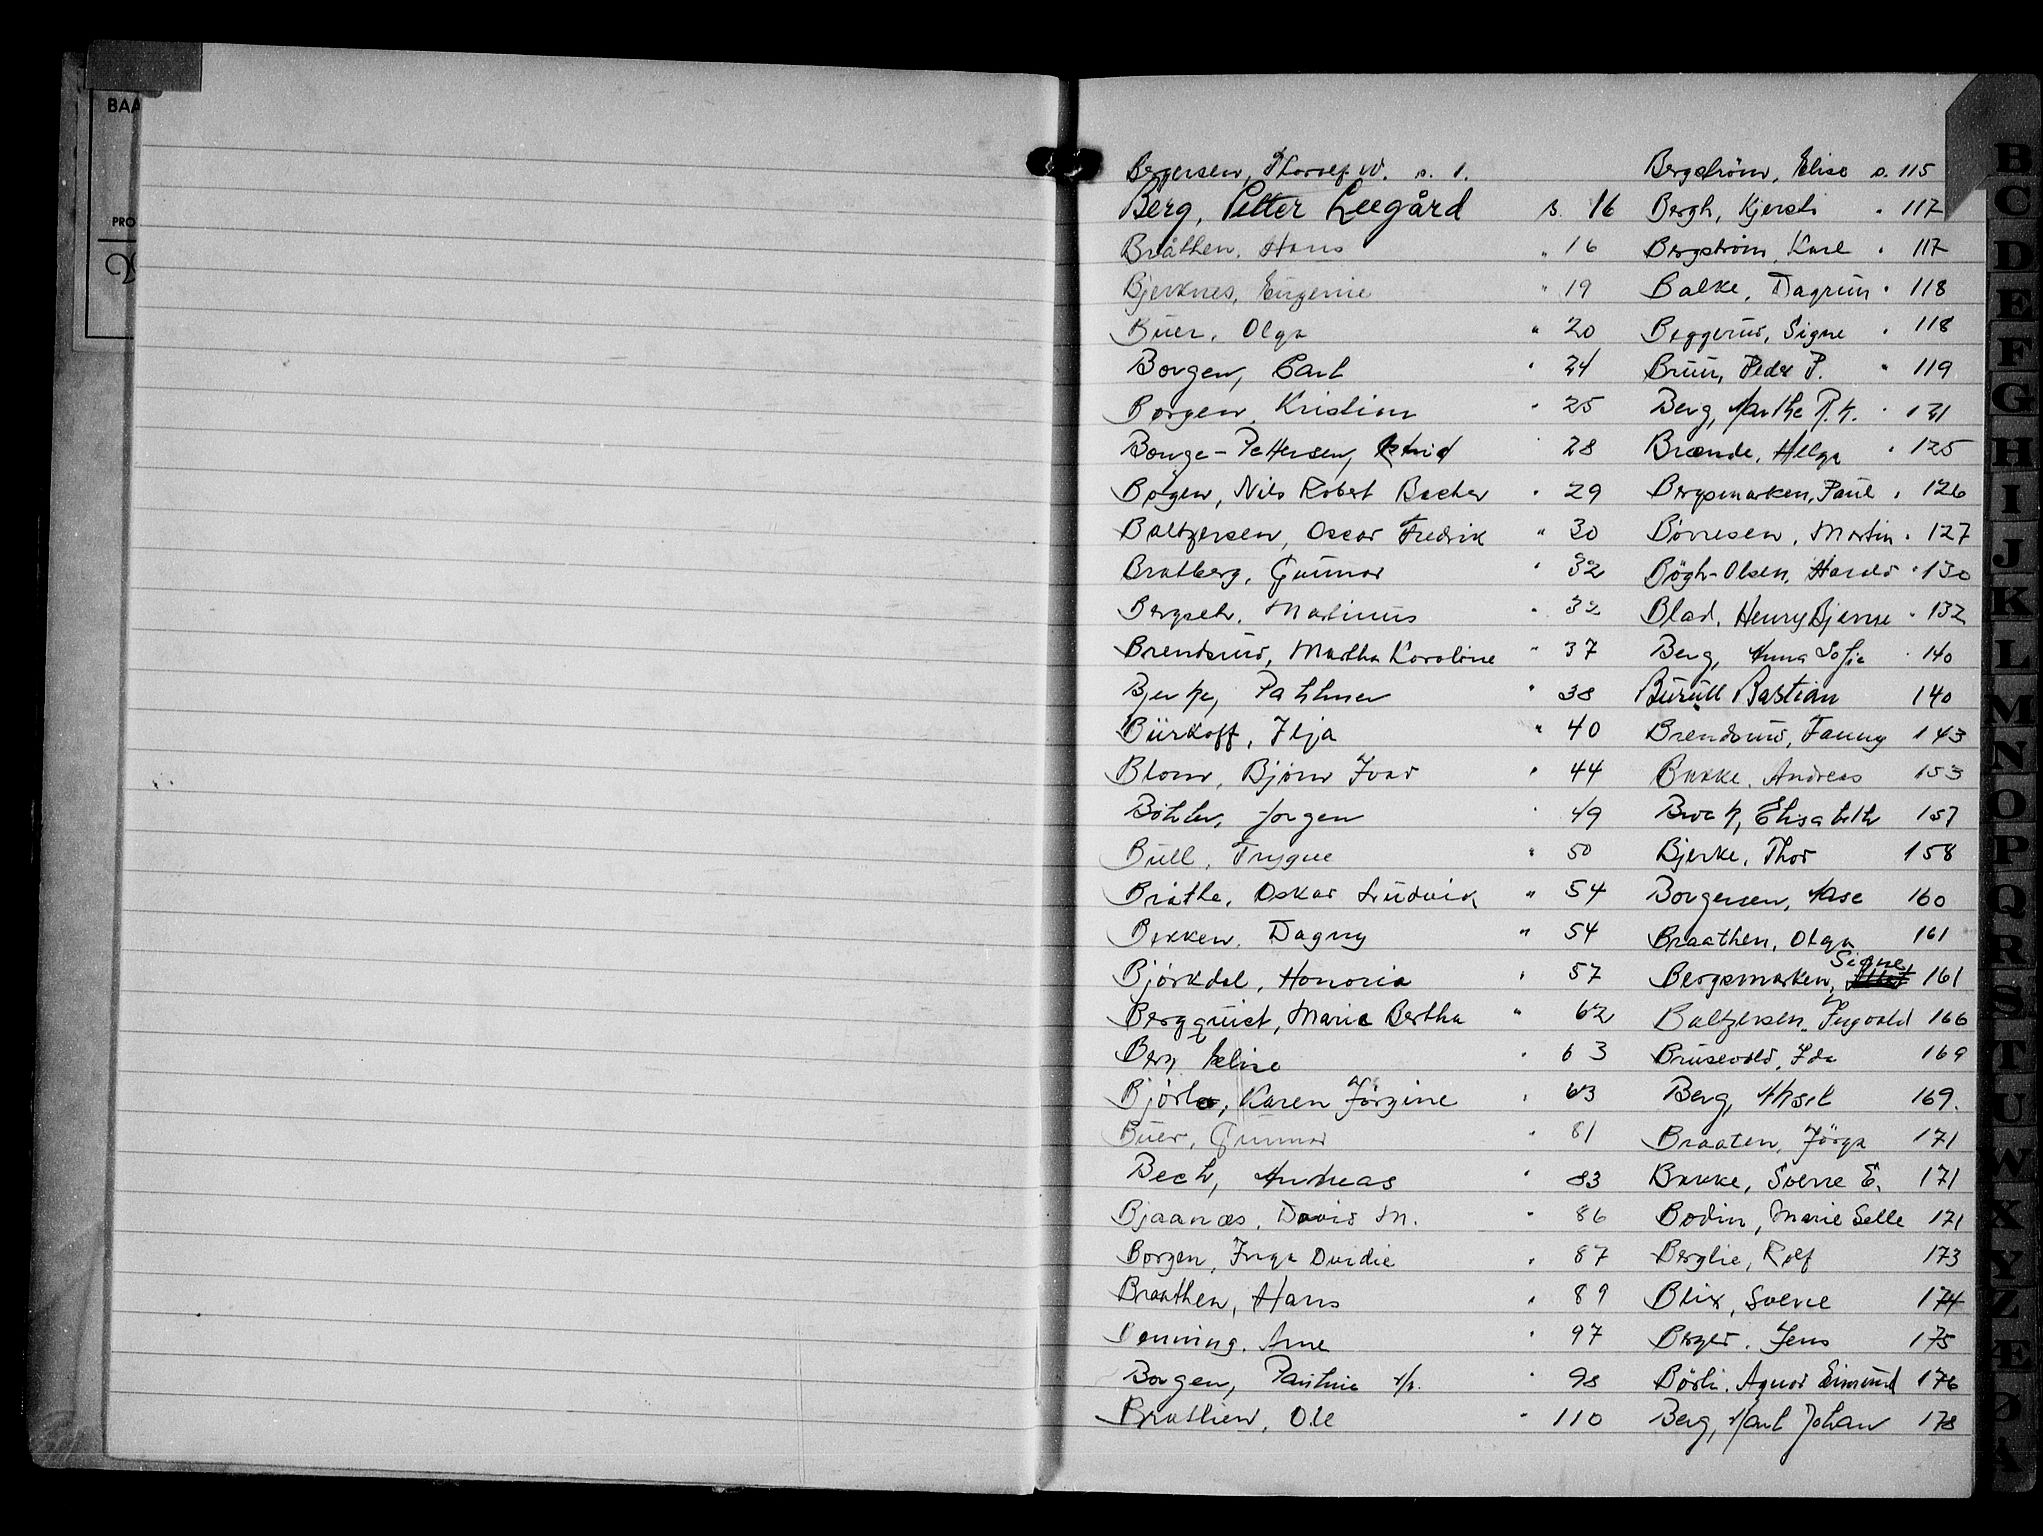 BAA
PRO
Bergersen, Thorolf W. s. 1.
Berg, Petter Leegård s. 16
Bråthen, Hans " 16
Bjerknes, Eugenie " 19
Buer, Olga " 20
Borgen, Carl " 24
Borgen, Kristian " 25
Bonge-Pettersen, Astrid 28
Bøgen, Nils Robert Bacher " 29
Baltzersen, Oscar Fredrik " 30
Bratberg, Gunnar " 32
Bergseth, Martinus " 32
Brendsrud, Martha Karoline " 37
Bjerke, Pettmer " 38
Burkoff, Ilja " 40
Blom, Bjørn Ivar " 44
Bøhler, Jørgen 49
Bull, Trygve " 50
Bråthe, Oskar Ludvik " 54
Bekken, Dagny " 54
Bjørkdal, Honoria " 57
Bergquist, Marie Bertha " 62
Berg, Heline " 63
Bjørlo, Karen Jørgine " 63
Buer, Gunnar " 81
Bech, Andreas " 83
Bjaanæs, David M. " 86
Borgen, Inga Ovidie " 87
Braathen, Hans " 89
Benning, Arne " 97
Borgen, Pauline " 98
Bråthen, Ole " 110
Bergstrøm, Elise s. 115
Bergh, Kjersti " 117
Bergstrøm, Karl " 117
Balke, Dagrun " 118
Beggerud, Signe " 118
Bruun, Peder P. " 119
Berg, Marthe R.K. " 121
Brænde, Helga " 125
Bergsmarken, Paul " 126
Børresen, Martin " 127
Bøgh-Olsen, Harald " 130
Blad, Henry Bjarne " 132
Berg, Anna Sofie " 140
Burull Bastian 140
Brendsrud, Fanny 143
Bakke, Andreas 153
Brock, Elisabeth 157
Bjerke, Thor 158
Borgersen, Aase 160
Braathen, Olga 161
Signe
Bergsmarken, 161
Baltzersen, Ingvald 166
Brusevold, Ida 169
Berg, Aksel 169.
Braaten, Jørga 171
Bakke, Sverre E. 171
Bodin, Marie Selle 171
Berglie, Rolf 173
Blix, Sverre 174
Berger, Jens 175
Børli, Agnar Eimund 176
Berg, Karl Johan 178
B
C
D
E
F
G
H
I
J
K
L
M
N
O
P
Q
R
S
T
U
W
X
Y
Z
Æ
Ø
A